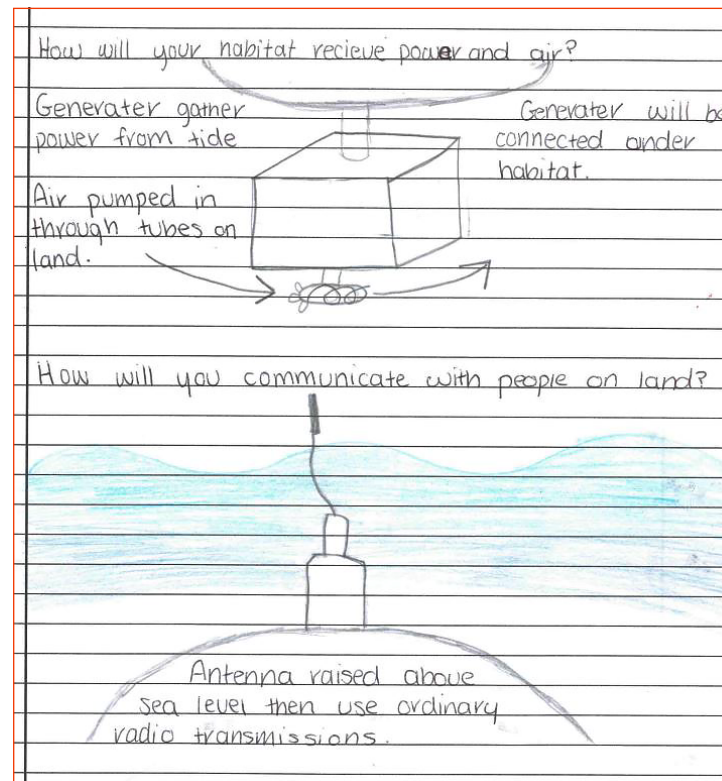 How will your habitat recieve power and air?
Generater gather
power from tide
Generater will be
connected onder
habitat.
Air pumped in
through tubes on
land.
How will you communicate with people on land?
Antenna raised above
sea level then use ordinary
radio transmissions.